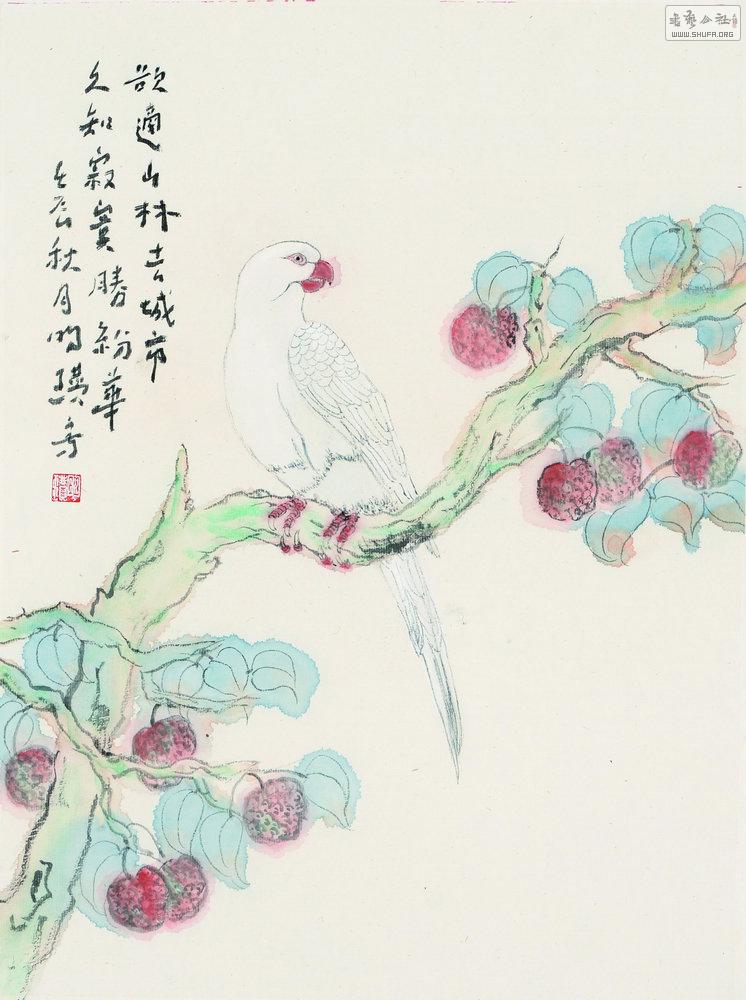 欲適山林去城市
久知寂寞勝紛華
壬辰秋月明瓚寫
書藝公社
WWW.SHUFA.ORG